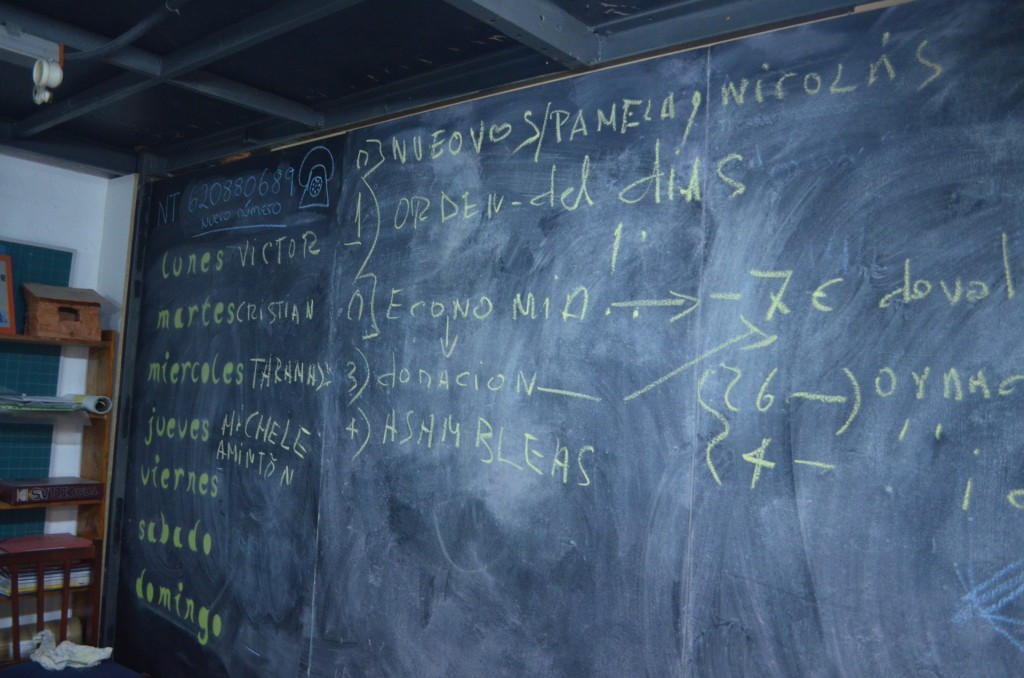 NT 620880689
NUEVO NÚMERO
lunes VICTOR
martes CRISTIAN
miercoles
jueves MICHELE
AMINTÖN
viernes
sabado
domingo
NUEVOS/PAMELA, NICOLÁS
1) ORDEN-del díAS
ECONOMIA . : → - 7 €
3) donACION
4) ASAMBLEAS
26 —
4 —